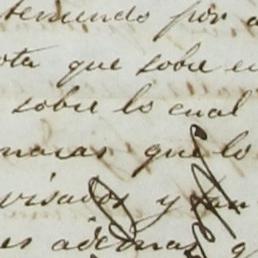 temiendo por
ota que sobre
sobre lo cual
que lo
visados y
es ademas